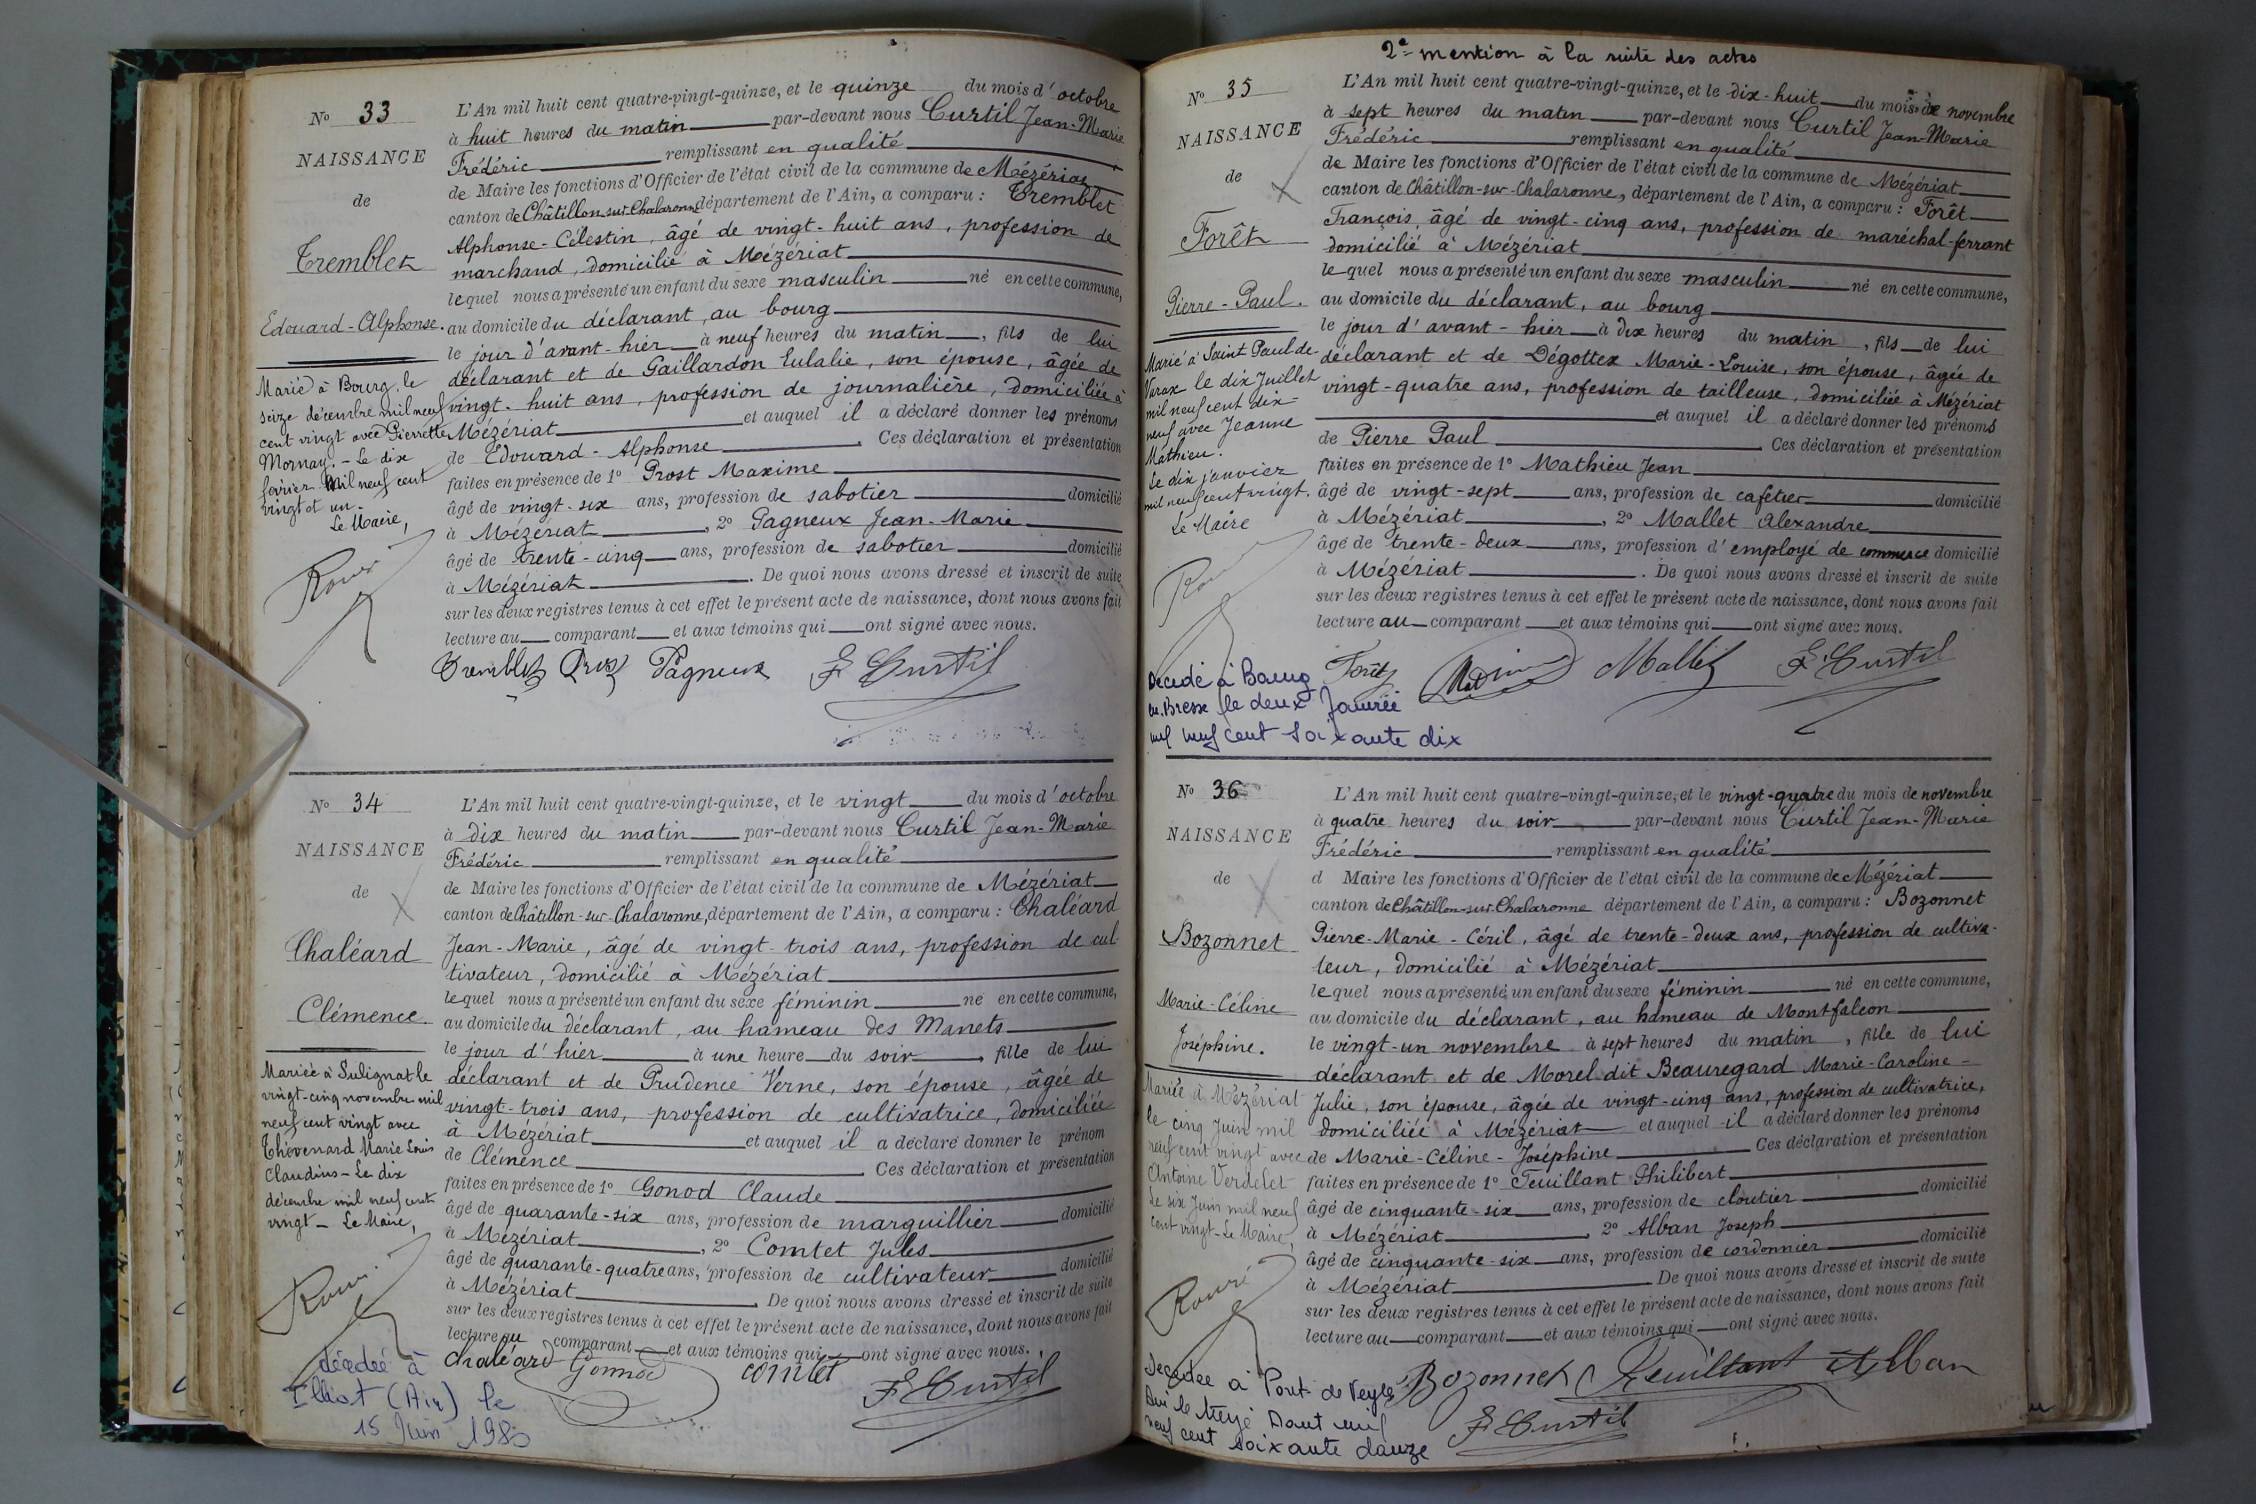 No 33
NAISSANCE
de
Tremblet
Edouard-Alphonse.
Marié à Bourg, le
seize décembre mil neuf
cent vingt avec Pierrette
Mornay. - Le dix
février mil neuf cent
vingt et un.
Le Maire,
L'An mil huit cent quatre-vingt-quinze, et le quinze du mois d'octobre
à huit heures du matin par-devant nous Curtil Jean-Marie
Frédéric remplissant en qualité
de Maire les fonctions d'Officier de l'état civil de la commune de Mézériat
canton de Châtillon-sur-Chalaronne département de l'Ain, a comparu : Tremblet
Alphonse-Célestin, âgé de vingt-huit ans, profession de
marchand, domicilié à Mézériat
lequel nous a présenté un enfant du sexe masculin né en cette commune,
au domicile du déclarant, au bourg
le jour d'avant-hier à neuf heures du matin, fils de lui
déclarant et de Gaillardon Eulalie, son épouse, âgée de
vingt-huit ans, profession de journalière, domiciliée à
Mézériat et auquel il a déclaré donner les prénoms
de Edouard-Alphonse. Ces déclaration et présentation
faites en présence de 1° Prost Maxime
âgé de vingt-six ans, profession de sabotier domicilié
à Mézériat, 2° Pagneux Jean-Marie
âgé de trente-cinq ans, profession de sabotier domicilié
à Mézériat. De quoi nous avons dressé et inscrit de suite
sur les deux registres tenus à cet effet le présent acte de naissance, dont nous avons fait
lecture au comparant et aux témoins qui ont signé avec nous.
Tremblet Prost Pagneux F. Curtil
No 34
NAISSANCE
de
Chaléard
Clémence
Mariée à Sulignat le
vingt-cinq novembre mil
neuf cent vingt avec
Thévenard Marie Louis
Claudius - Le dix
décembre mil neuf cent
vingt - Le Maire,
décédée à
Illiat (Ain) le
15 Juin
L'An mil huit cent quatre-vingt-quinze, et le vingt du mois d'octobre
à dix heures du matin par-devant nous Curtil Jean-Marie
Frédéric remplissant en qualité
de Maire les fonctions d'Officier de l'état civil de la commune de Mézériat
canton de Châtillon-sur-Chalaronne, département de l'Ain, a comparu : Chaléard
Jean-Marie, âgé de vingt-trois ans, profession de cul-
tivateur, domicilié à Mézériat
lequel nous a présenté un enfant du sexe féminin né en cette commune,
au domicile du déclarant, au hameau des Manets
le jour d'hier à une heure du soir, fille de lui
déclarant et de Prudence Verne, son épouse, âgée de
vingt-trois ans, profession de cultivatrice, domiciliée
à Mézériat et auquel il a déclaré donner le prénom
de Clémence. Ces déclaration et présentation
faites en présence de 1° Gonod Claude
âgé de quarante-six ans, profession de marguillier domicilié
à Mézériat, 2° Comtet Jules
âgé de quarante-quatre ans, profession de cultivateur domicilié
à Mézériat. De quoi nous avons dressé et inscrit de suite
sur les deux registres tenus à cet effet le présent acte de naissance, dont nous avons fait
lecture au comparant et aux témoins qui ont signé avec nous.
Chaléard Gonod Comtet
F. Curtil
2e mention à la suite des actes
No 35
NAISSANCE
de
Forêt
Pierre-Paul.
Marié à Saint Paul de
Varax le dix Juillet
mil neuf cent dix-
neuf avec Jeanne
Mathieu.
Le dix janvier
mil neuf cent vingt.
Le Maire
Décédé à Bourg
en Bresse le deux Janvier
mil neuf cent soixante dix
L'An mil huit cent quatre-vingt-quinze, et le dix-huit du mois de novembre
à sept heures du matin par-devant nous Curtil Jean-Marie
Frédéric remplissant en qualité
de Maire les fonctions d'Officier de l'état civil de la commune de Mézériat
canton de Châtillon-sur-Chalaronne, département de l'Ain, a comparu : Forêt
François, âgé de vingt-cinq ans, profession de maréchal-ferrant
domicilié à Mézériat
lequel nous a présenté un enfant du sexe masculin né en cette commune,
au domicile du déclarant, au bourg
le jour d'avant-hier à dix heures du matin, fils de lui
déclarant et de Dégottex Marie-Louise, son épouse, âgée de
vingt-quatre ans, profession de tailleuse, domiciliée à Mézériat
et auquel il a déclaré donner les prénoms
de Pierre Paul. Ces déclaration et présentation
faites en présence de 1° Mathieu Jean
âgé de vingt-sept ans, profession de cafetier domicilié
à Mézériat, 2° Mallet Alexandre
âgé de trente-deux ans, profession d'employé de commerce domicilié
à Mézériat. De quoi nous avons dressé et inscrit de suite
sur les deux registres tenus à cet effet le présent acte de naissance, dont nous avons fait
lecture au comparant et aux témoins qui ont signé avec nous.
Forêt Mallet F. Curtil
No 36
NAISSANCE
de
Bozonnet
Marie-Céline
Joséphine.
Mariée à Mézériat
le cinq Juin mil
neuf cent vingt avec
Antoine Verdelet
Le six Juin mil neuf
cent vingt - Le Maire,
Décédée à Pont de Veyle
neuf cent soixante
L'An mil huit cent quatre-vingt-quinze, et le vingt-quatre du mois de novembre
à quatre heures du soir par-devant nous Curtil Jean-Marie
Frédéric remplissant en qualité
d Maire les fonctions d'Officier de l'état civil de la commune de Mézériat
canton de Châtillon-sur-Chalaronne département de l'Ain, a comparu : Bozonnet
Pierre-Marie-Céril, âgé de trente-deux ans, profession de cultiva-
teur, domicilié à Mézériat
lequel nous a présenté un enfant du sexe féminin né en cette commune,
au domicile du déclarant, au hameau de Montfalcon
le vingt-un novembre à sept heures du matin, fille de lui
déclarant et de Morel dit Beauregard Marie-Caroline-
Julie, son épouse, âgée de vingt-cinq ans, profession de cultivatrice,
domiciliée à Mézériat et auquel il a déclaré donner les prénoms
de Marie-Céline-Joséphine Ces déclaration et présentation
faites en présence de 1° Feuillant Philibert
âgé de cinquante-six ans, profession de cloutier domicilié
à Mézériat, 2° Alban Joseph
âgé de cinquante-six ans, profession de cordonnier domicilié
à Mézériat De quoi nous avons dressé et inscrit de suite
sur les deux registres tenus à cet effet le présent acte de naissance, dont nous avons fait
lecture au comparant et aux témoins qui ont signé avec nous.
Bozonnet Feuillant Alban
F. Curtil